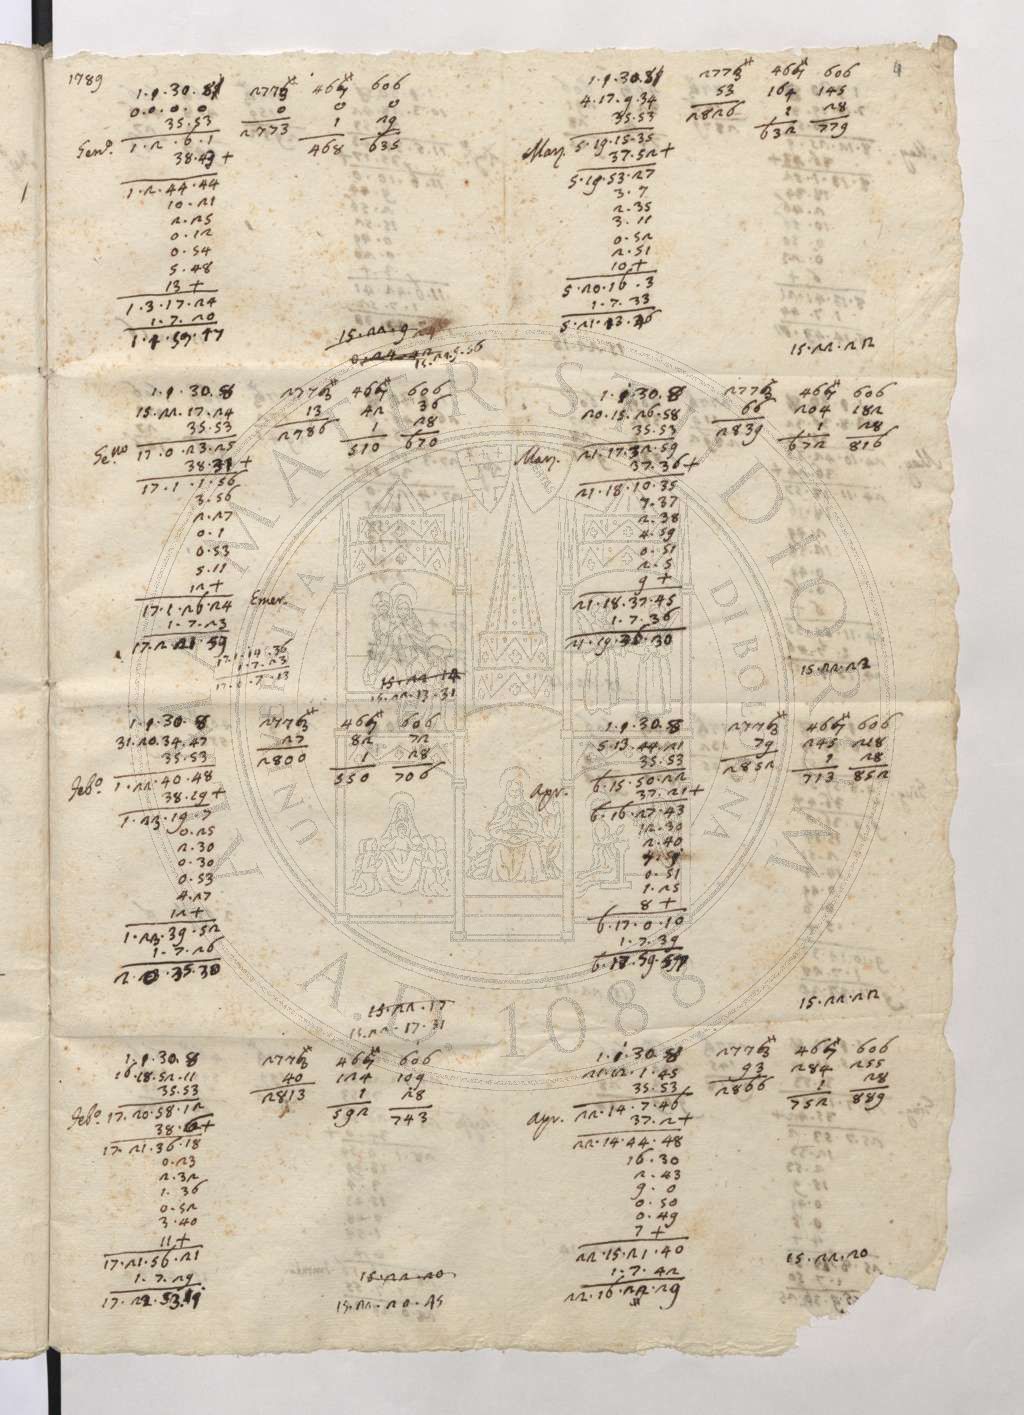 1789
4
1.1.30.8 2773 467 606
0.0.0.0 0 0 0
35.53 2773 1 29
Gen.o 1.2.6.1 468 635
38.43 +
1.2.44.44
10.21
2.25
0.12
0.54
5.48
13 +
1.3.17.24
1.7.20
1.4.59.47
15.22.9
1.1.30.8 2773 467 606
15.22.17.24 13 42 36
35.53 2786 1 28
Ge.no 17.0.23.25 510 670
38.31 +
17.1.1.56
3.56
2.27
0.1
0.53
5.11
12 +
17.1.26.24 Emer.
1.7.23
17.2.21.59
1.7.23
15.22.14
15.22.13.31
1.1.30.8 2773 467 606
31.20.34.47 27 82 72
35.53 2800 1 28
Feb.o 1.22.40.48 550 706
38.19 +
1.23.19.7
0.25
2.30
0.30
0.53
4.27
12 +
1.23.39.52
1.7.26
15.22.17
15.22.17.31
1.1.30.8 2773 467 606
16.18.52.11 40 124 109
35.53 2813 1 28
Feb.o 17.20.58.12 592 743
38.6 +
17.21.36.18
0.23
2.32
1.36
0.52
3.40
11 +
17.21.56.21
1.7.29
15.22.20
15.22.20.25
1.1.30.8 2773 467 606
4.17.9.34 53 164 145
35.53 2826 1 28
Marz. 5.19.15.35 632 779
37.52 +
5.19.53.27
3.7
2.35
3.11
0.52
2.51
10 +
5.20.16.3
1.7.33
15.22.22
1.1.30.8 2773 467 606
20.15.26.58 66 204 182
35.53 2839 1 28
Marz. 21.17.32.59 672 816
37.36 +
21.18.10.35
7.37
2.38
4.59
0.51
2.5
9 +
21.18.37.45
1.7.36
15.22.23
1.1.30.8 2773 467 606
5.13.44.21 79 245 218
35.53 2852 1 28
Apr. 6.15.50.22 713 852
37.21 +
6.16.27.43
12.30
2.40
0.51
1.25
8 +
6.17.0.10
1.7.39
15.22.22
1.1.30.8 2773 467 606
21.12.1.45 93 284 255
35.53 2866 1 28
Apr. 22.14.7.46 752 889
37.2 +
22.14.44.48
16.30
2.43
9.0
0.50
0.49
7 +
22.15.21.40
1.7.42
22.16.22.29
15.22.20
ALMA MATER STUDIORUM
A.D. 1088